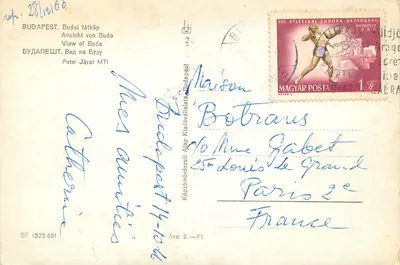 rep. 28/12/66
BUDAPEST. Budai látkép
Ansicht von Buda
View of Buda
БУДАПЕШТ. Вид на Буду
Foto: Járai MTI
Budapest 14-10-66
Mes amitiés
Catherine
BF 1523/661
Ára: 2.— Ft
Képzőművészeti Alap Kiadóvállalata, Budapest
MAGYAR POSTA 1 Ft
Maison
Botrans
c/o Mme Gabet
25 rue Louis le Grand
Paris 2e
France